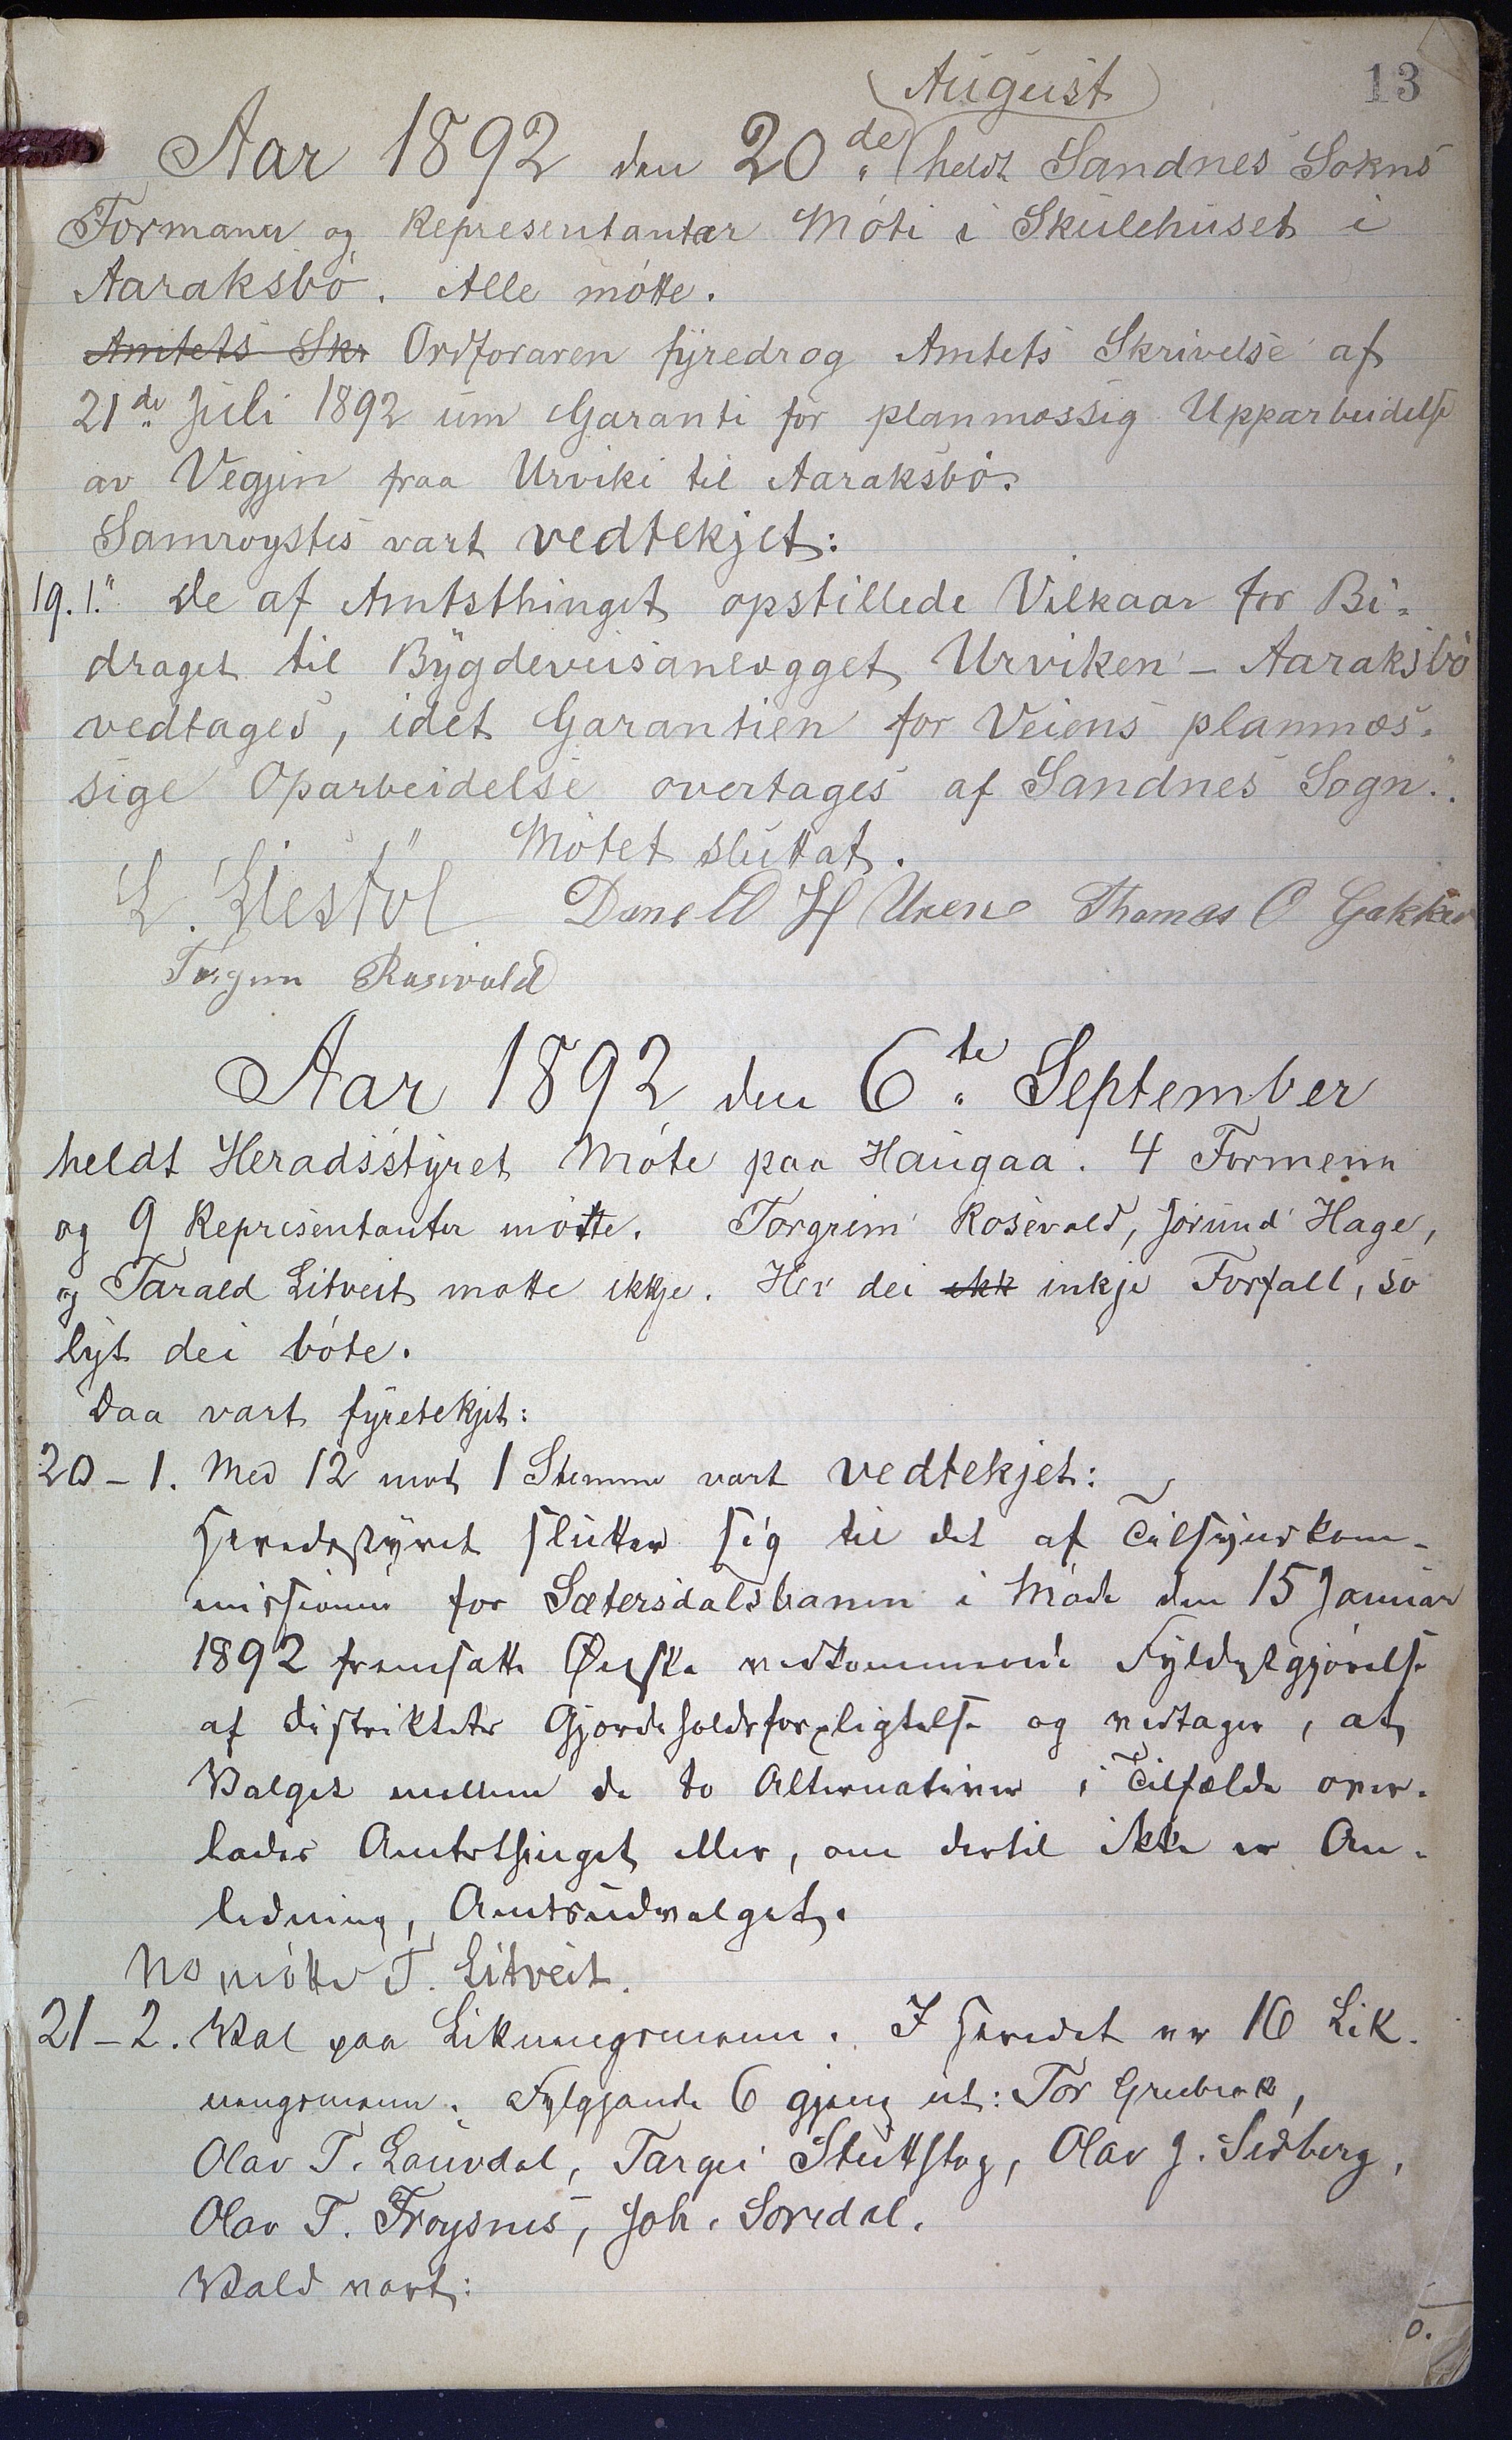 13
August
Aar 1892 den 20de heldt Sandnes Sokns
Formenn og Representantar Móte i Skulehuset i
Aaraksbó. Alle mótte.
Amtets Skr Ordforaren fyredrog Amtets Skrivelse af
21de Juli 1892 um Garanti for planmæssig Upparbeidelse
av Vegjin fraa Urviki til Aaraksbó.
Samroystes vart vedtekjet:
19. 1." De af Amtsthinget opstillede Vilkaar for Bi-
draget til Bygdeveisanlægget Urviken - Aaraksbó
vedtages, idet Garantien for Veiens planmæs-
sige Oparbeidelse overtages af Sandnes Sogn."
Mótet sluttat.
L. Liestöl Danel H Urene Thomas O
Rosevald
Aar 1892 den 6te September
heldt Heradsstyret Móte paa Haugaa. 4 Formenn
og 9 Representanter mótte. Torgrim Rosevald, Jorund Hage,
og Tarald Litveit motte ikkje. Hev dei ikk inkje Forfall, so
lyt dei bóte.
Daa vart fyretekjet:
20 - 1. Med 12 mot 1 Stemme vart vedtekjet:
Heredsstyret slutter sig til det af Tilsynskom-
missionen for Sætersdalsbanen i Móde den 15 Januar
1892 fremsatte Ønske vedkommende Fyldestgjórelse
af Distriktets Gjerdeholdsforpligtelse og vedtager, at
Valget mellem de to Alternativer i Tilfælde over-
lades Amtsthinget eller, om dertil ikke er An-
ledning, Amtsudvalget.
No mótte T. Litveit.
21 - 2. Val paa Likningsmenn. I Heredet er 16 Lik-
nengsmenn. Fylgjande 6 gjeng ut: Tor Grubrok,
Olav T. Lauvdal, Targei Stuttstog, Olav J. Sedberg,
Olav T. Froysnes, Joh. Soredal.
Vald vart: